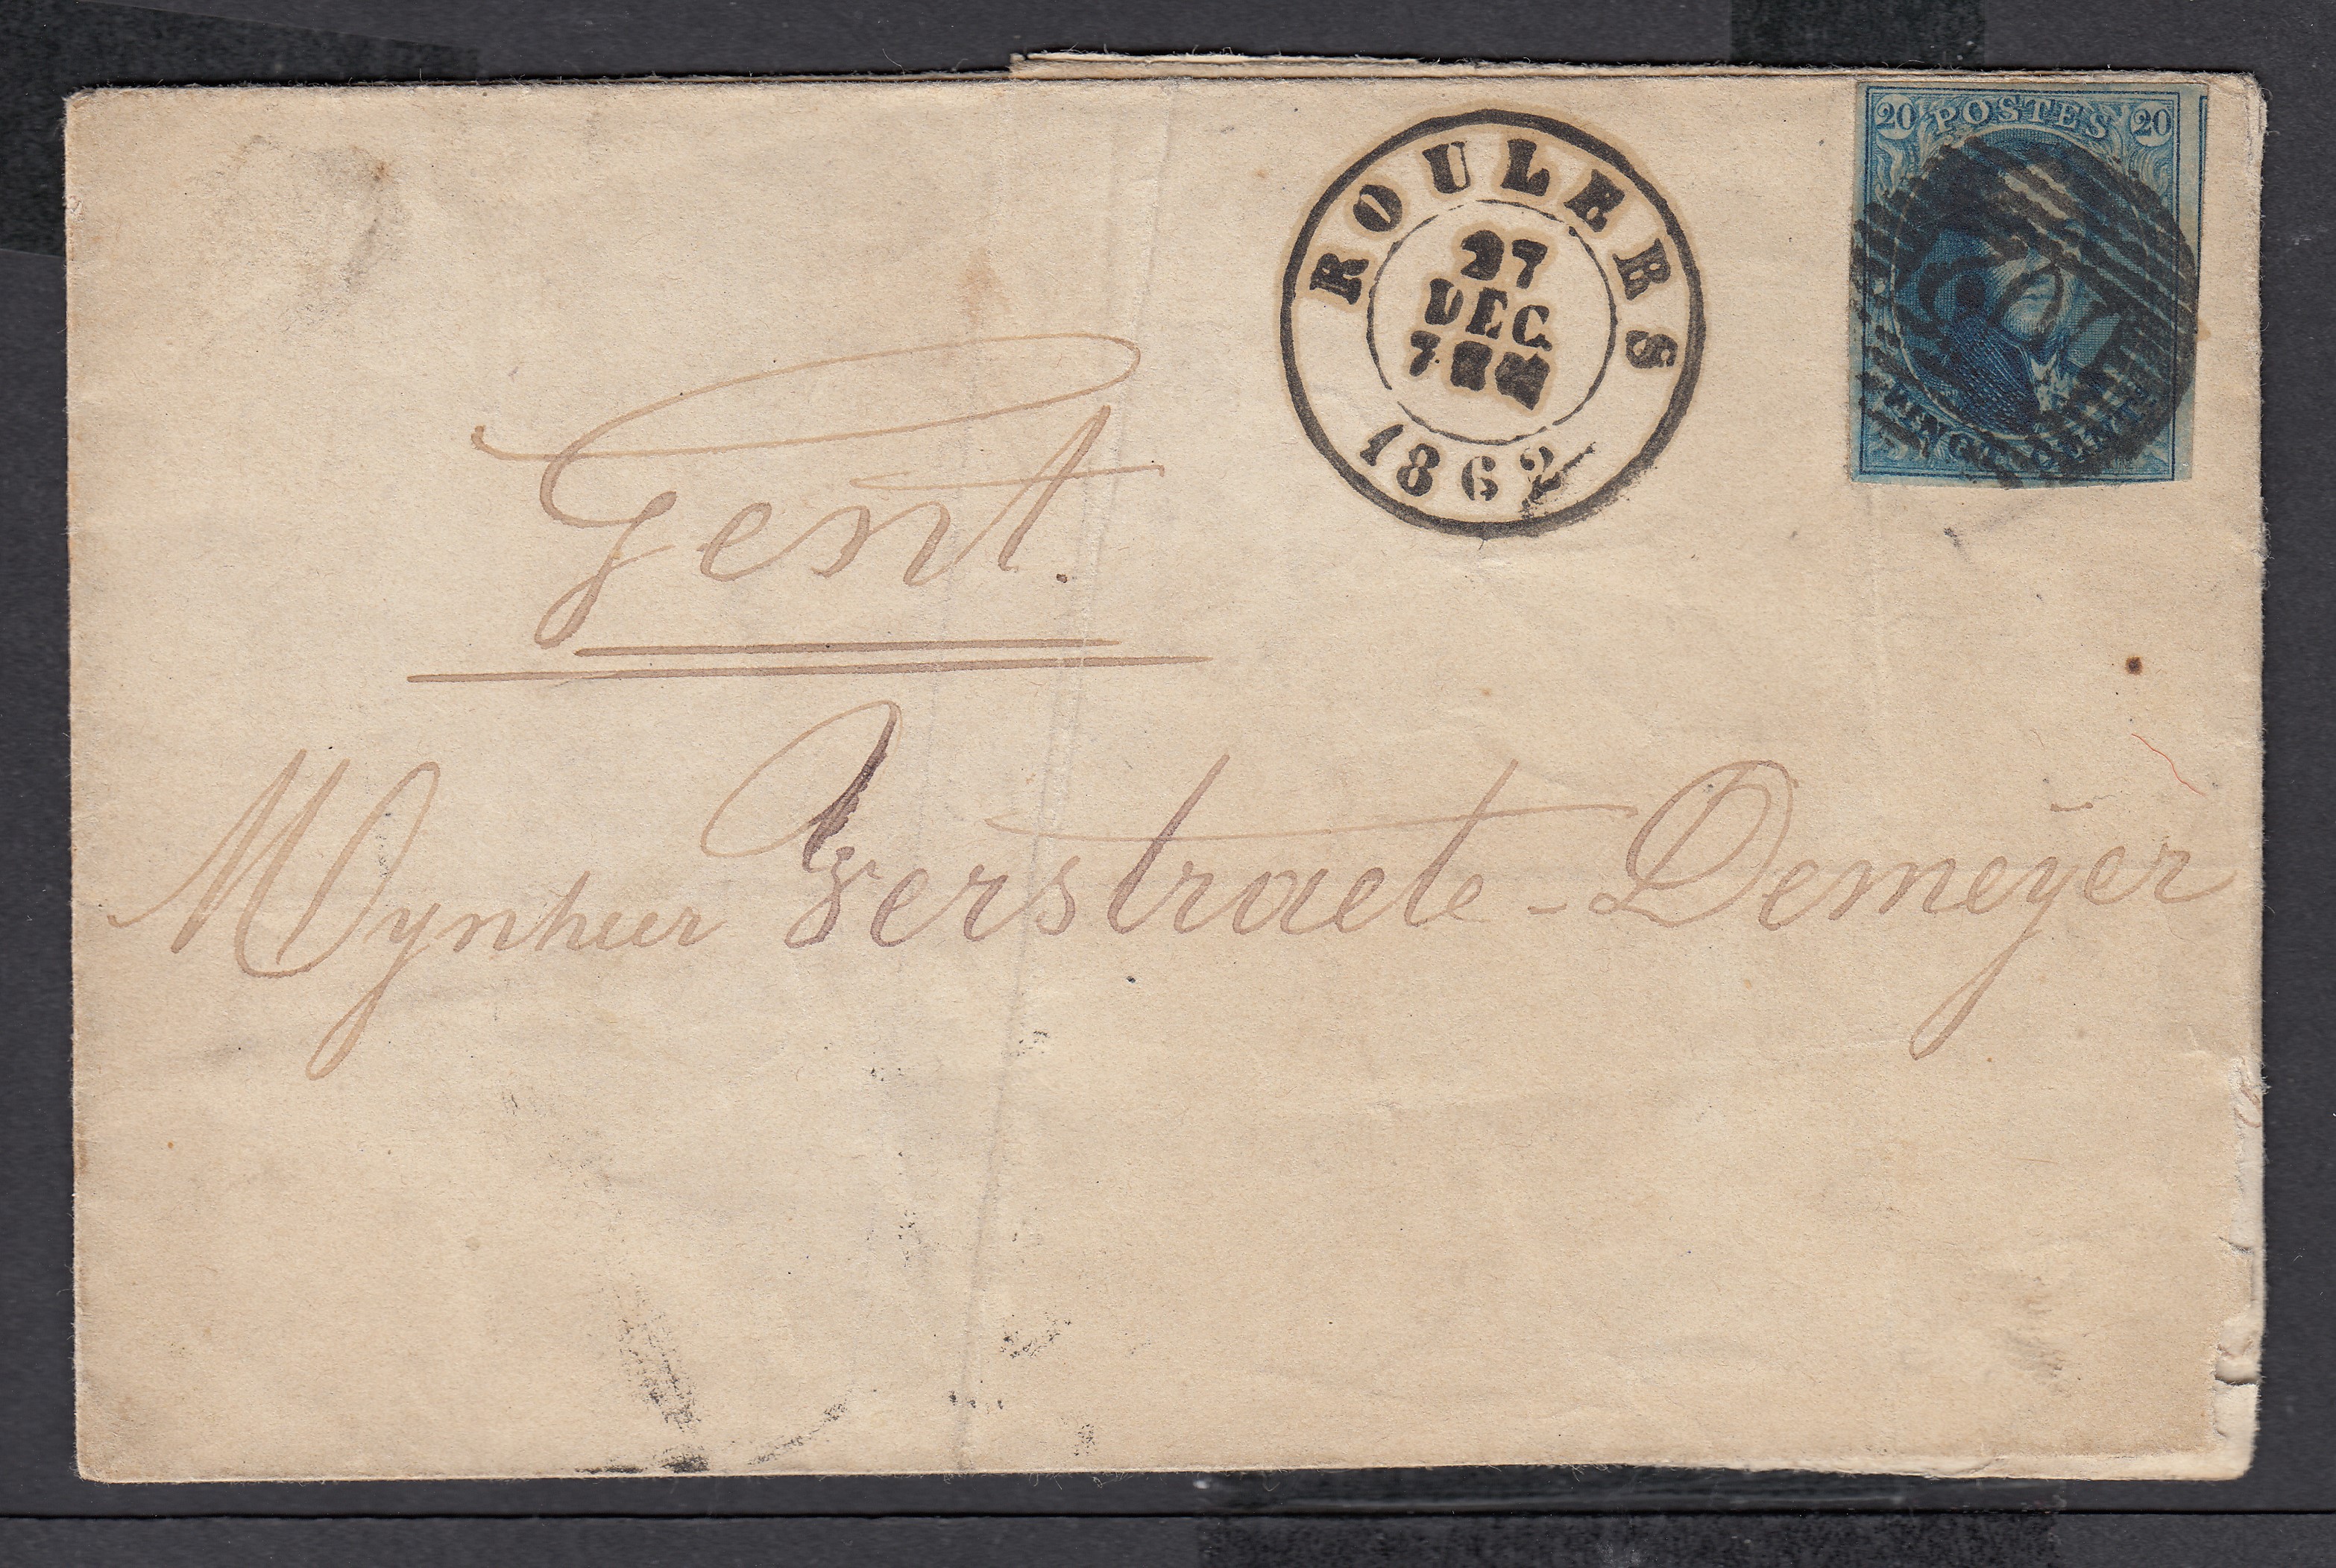 20 POSTES 20
VINGT CENTS
ROULERS
27
DEC
7
1862
Gent.
Mynheer Verstraete - Demeÿer